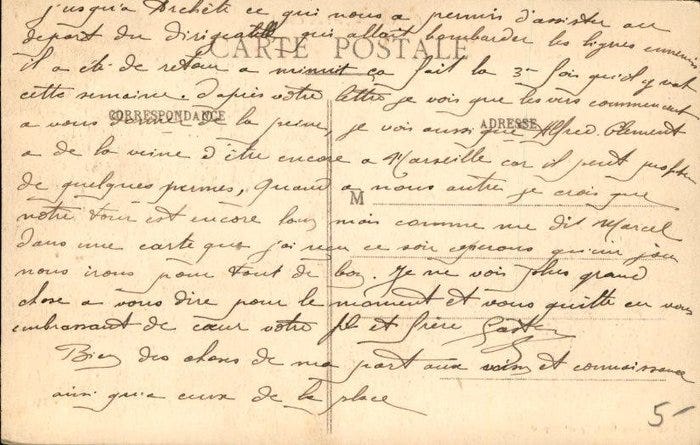 jusqu'a Archête ce qui nous a permis d'assister au
depart du dirigeable qui allait bombarder les lignes ennemies
CARTE POSTALE
il a été de retour a minuit ça fait la 3e fois qu'il y vat
cette semaine. d'après votre lettre je vois que les vers commencent
CORRESPONDANCE
ADRESSE
a vous donner de la peine, je vois aussi que Alfred Clement
a de la veine d'être encore a Marseille car il peut profiter
de quelques permes, Quand a nous autre je crois que
M
notre tour est encore loin mais comme me dit Marcel
dans une carte que j'ai reçu ce soir esperons qu'un jour
nous irons pour tout de bon. Je ne vois plus grand
chose a vous dire pour le moment et vous quitte en vous
embrassant de cœur votre fils et frère Gaston
Bien des choses de ma part aux voisins et connaissance
ainsi qu'a ceux de la place
5